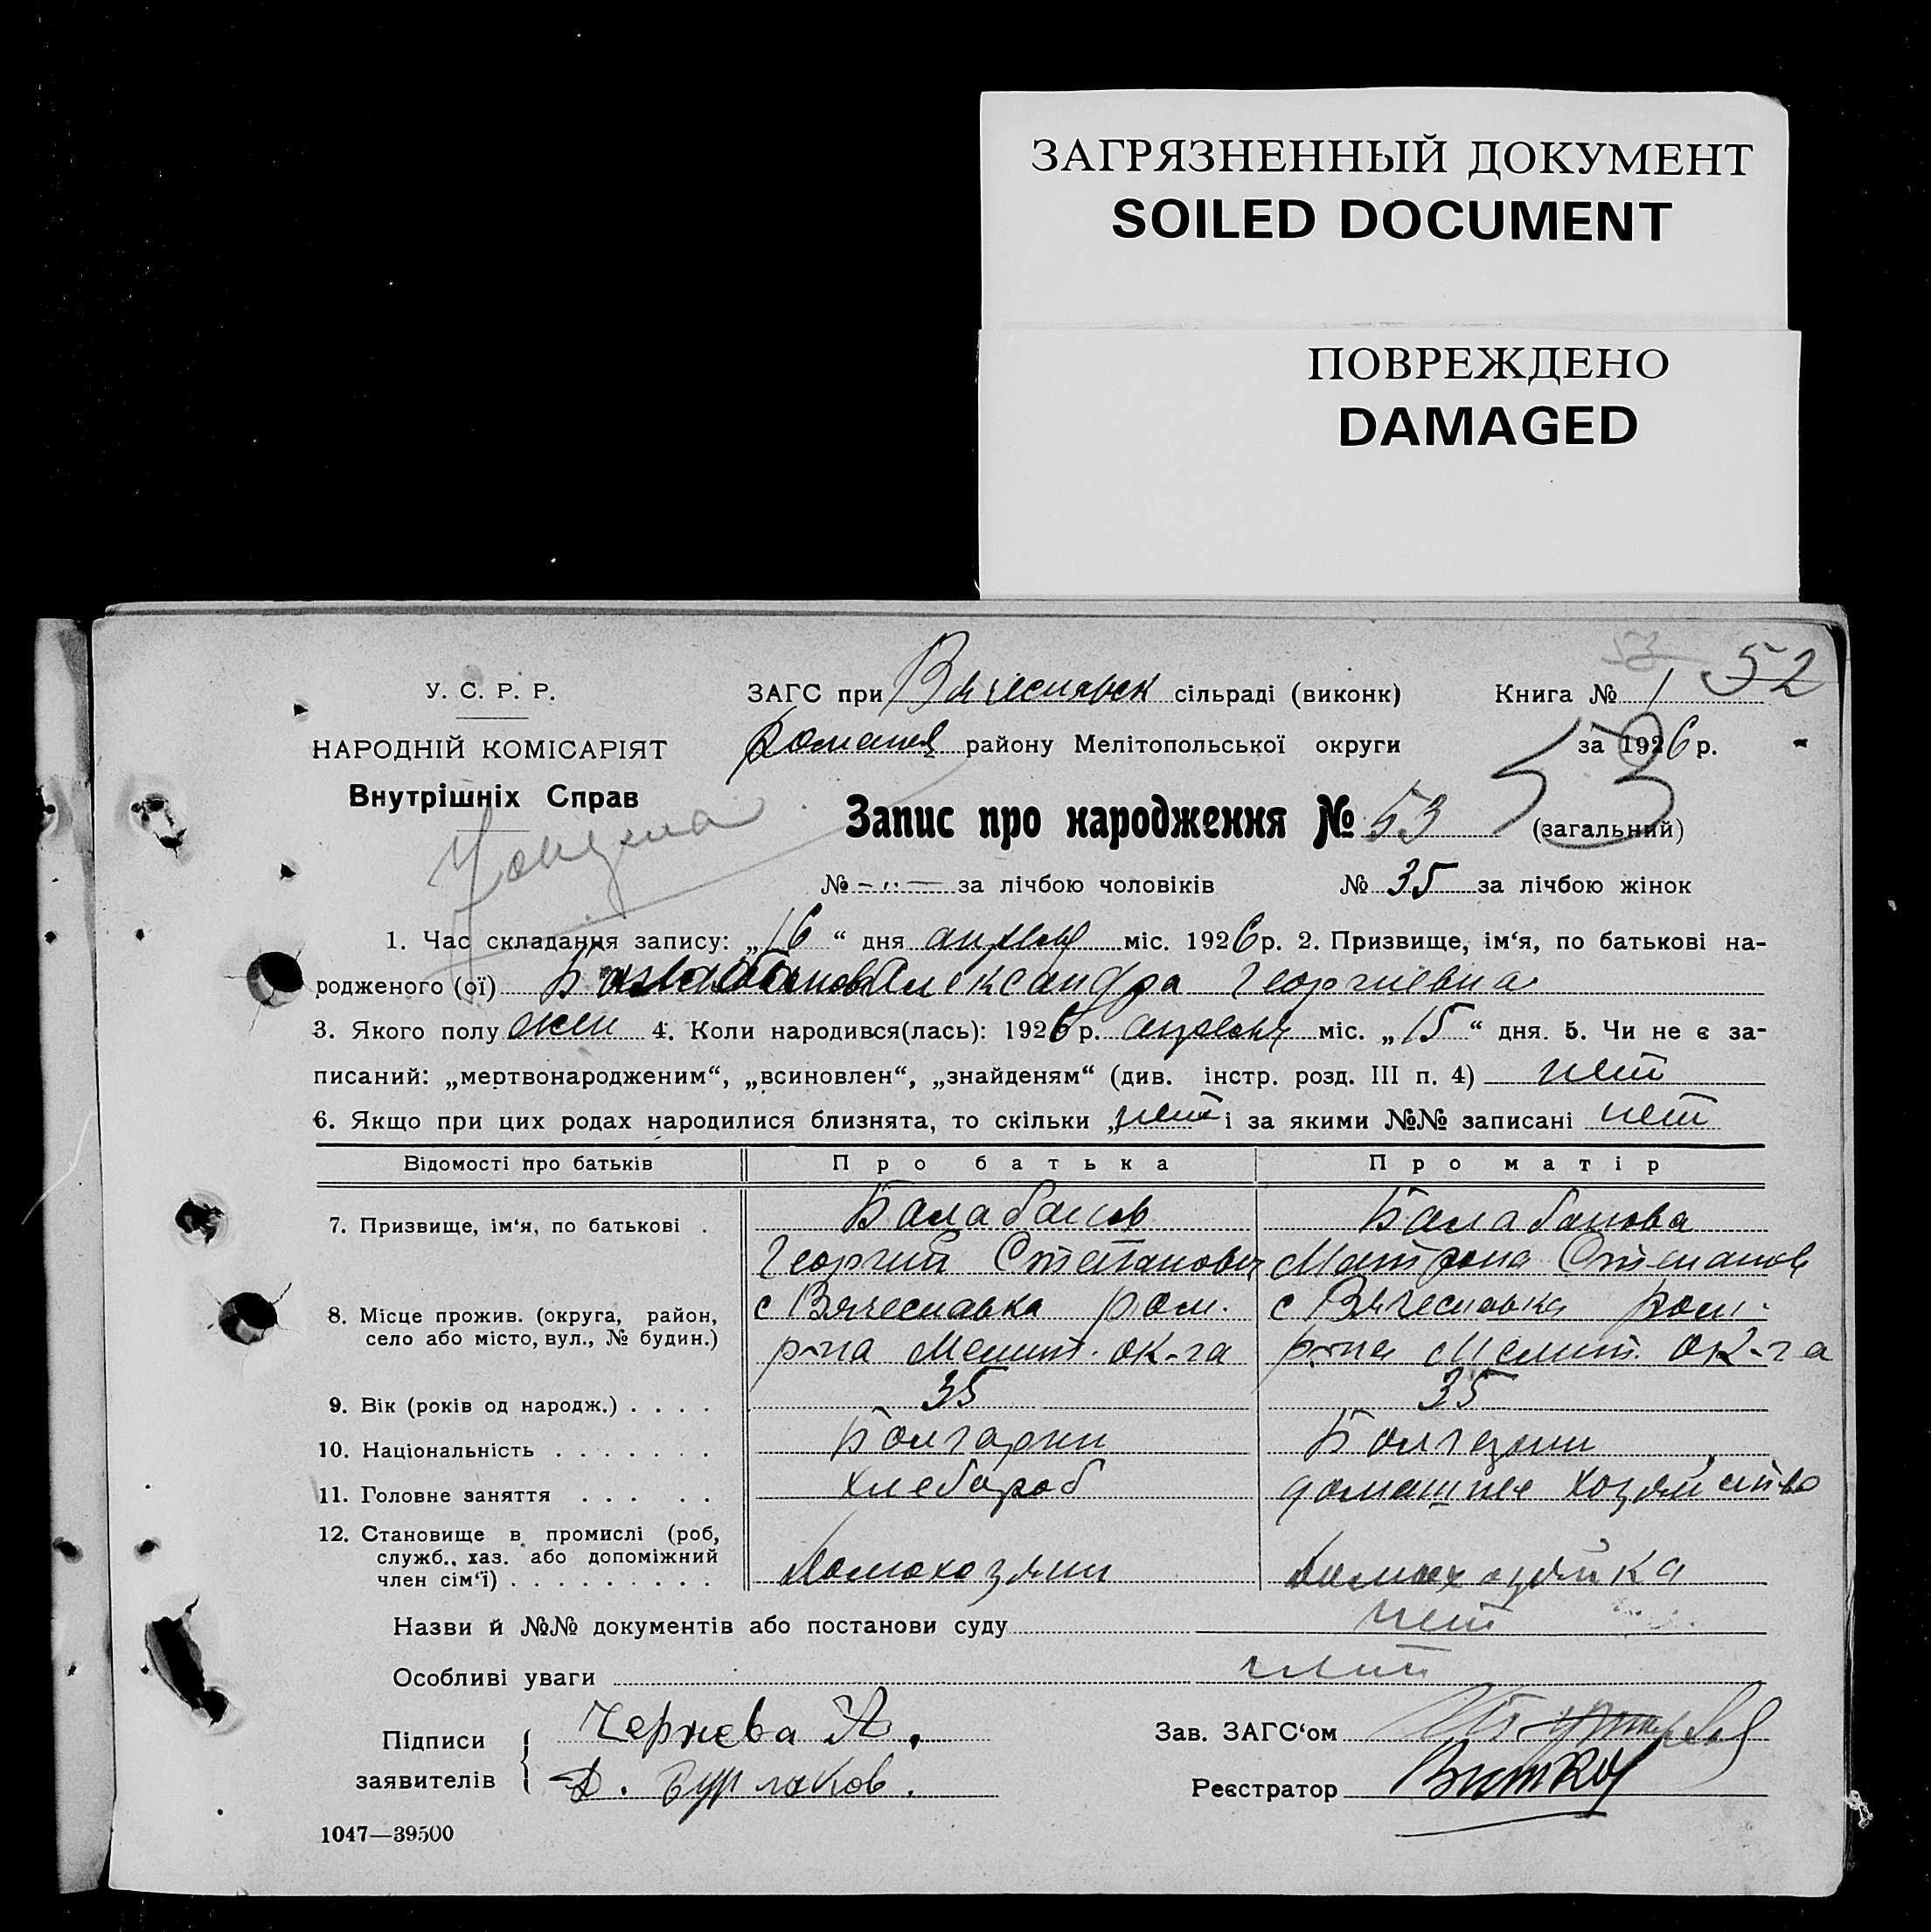 ЗАГРЯЗНЕННЫЙ ДОКУМЕНТ
SOILED DOCUMENT
ПОВРЕЖДЕНО
DAMAGED
53 52
У. С. Р. Р. ЗАГС при Вячеславск сільраді (виконк) Книга № 1
НАРОДНІЙ КОМІСАРІЯТ Романов району Мелітопольської округи за 1926 р.
Внутрішніх Справ
Запис про народження № 53 (загальний) 53
№ -"- за лічбою чоловіків № 35 за лічбою жінок
1. Час складання запису: „16“ дня апреля міс. 1926 р. 2. Призвище, ім‘я, по батькові на-
родженого (ої) Балабанова Александра Георгиевна
3. Якого полу жен 4. Коли народився(лась): 1926 р. апреля міс. „15“ дня. 5. Чи не є за-
писаний: „мертвонародженим“, „всиновлен“, „знайденям“ (див. інстр. розд. III п. 4) нет
6. Якщо при цих родах народилися близнята, то скільки „нет і за якими №№ записані нет
Відомості про батьків Про батька Про матір
7. Призвище, ім‘я, по батькові . Балабанов Балабанова
Георгий Степанович Матрона Степанов
8. Місце прожив. (округа, район, с Вячеславка ром. с Вячеславка ром.
село або місто, вул., № будин.) р-на Мелит. ок-га р-на Мелит. ок-га
9. Вік (років од народж.) . . . . 35 35
10. Національність . . . . . . . Болгарин Болгарин
11. Головне заняття . . . . . хлебороб домашнее хозяйство
12. Становище в промислі (роб,
служб., хаз. або допоміжний
член сім‘ї) . . . . . . . . . Домохозяин Домохозяйка
Назви й №№ документів або постанови суду нет
Особливі уваги нет
Підписи Чернева А. Зав. ЗАГС‘ом
заявителів Д. Бурлаков. Реєстратор
1047—39500